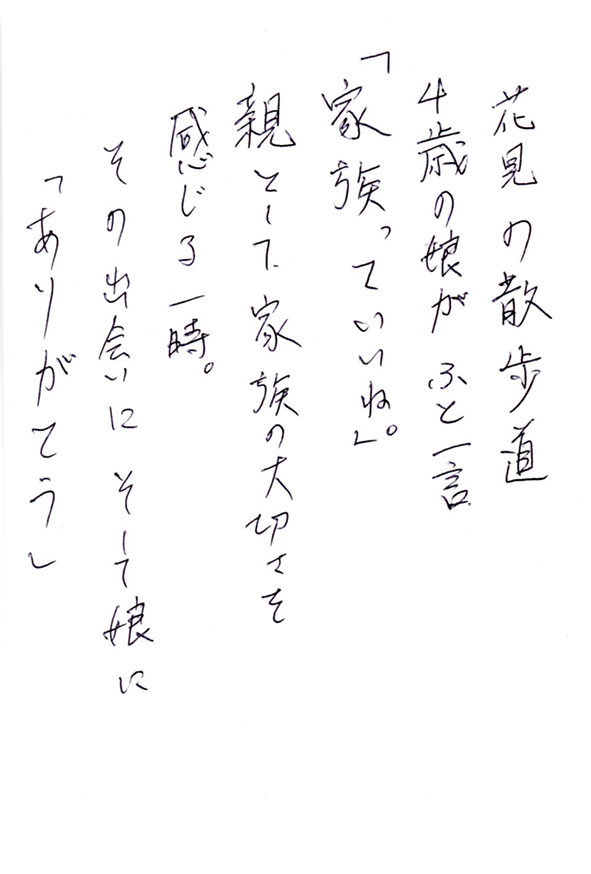 花見の散歩道
4歳の娘が ふと一言
「家族っていいね。」
親として 家族の大切さを
感じる一時。
その出会いに そして娘に
「ありがとう」